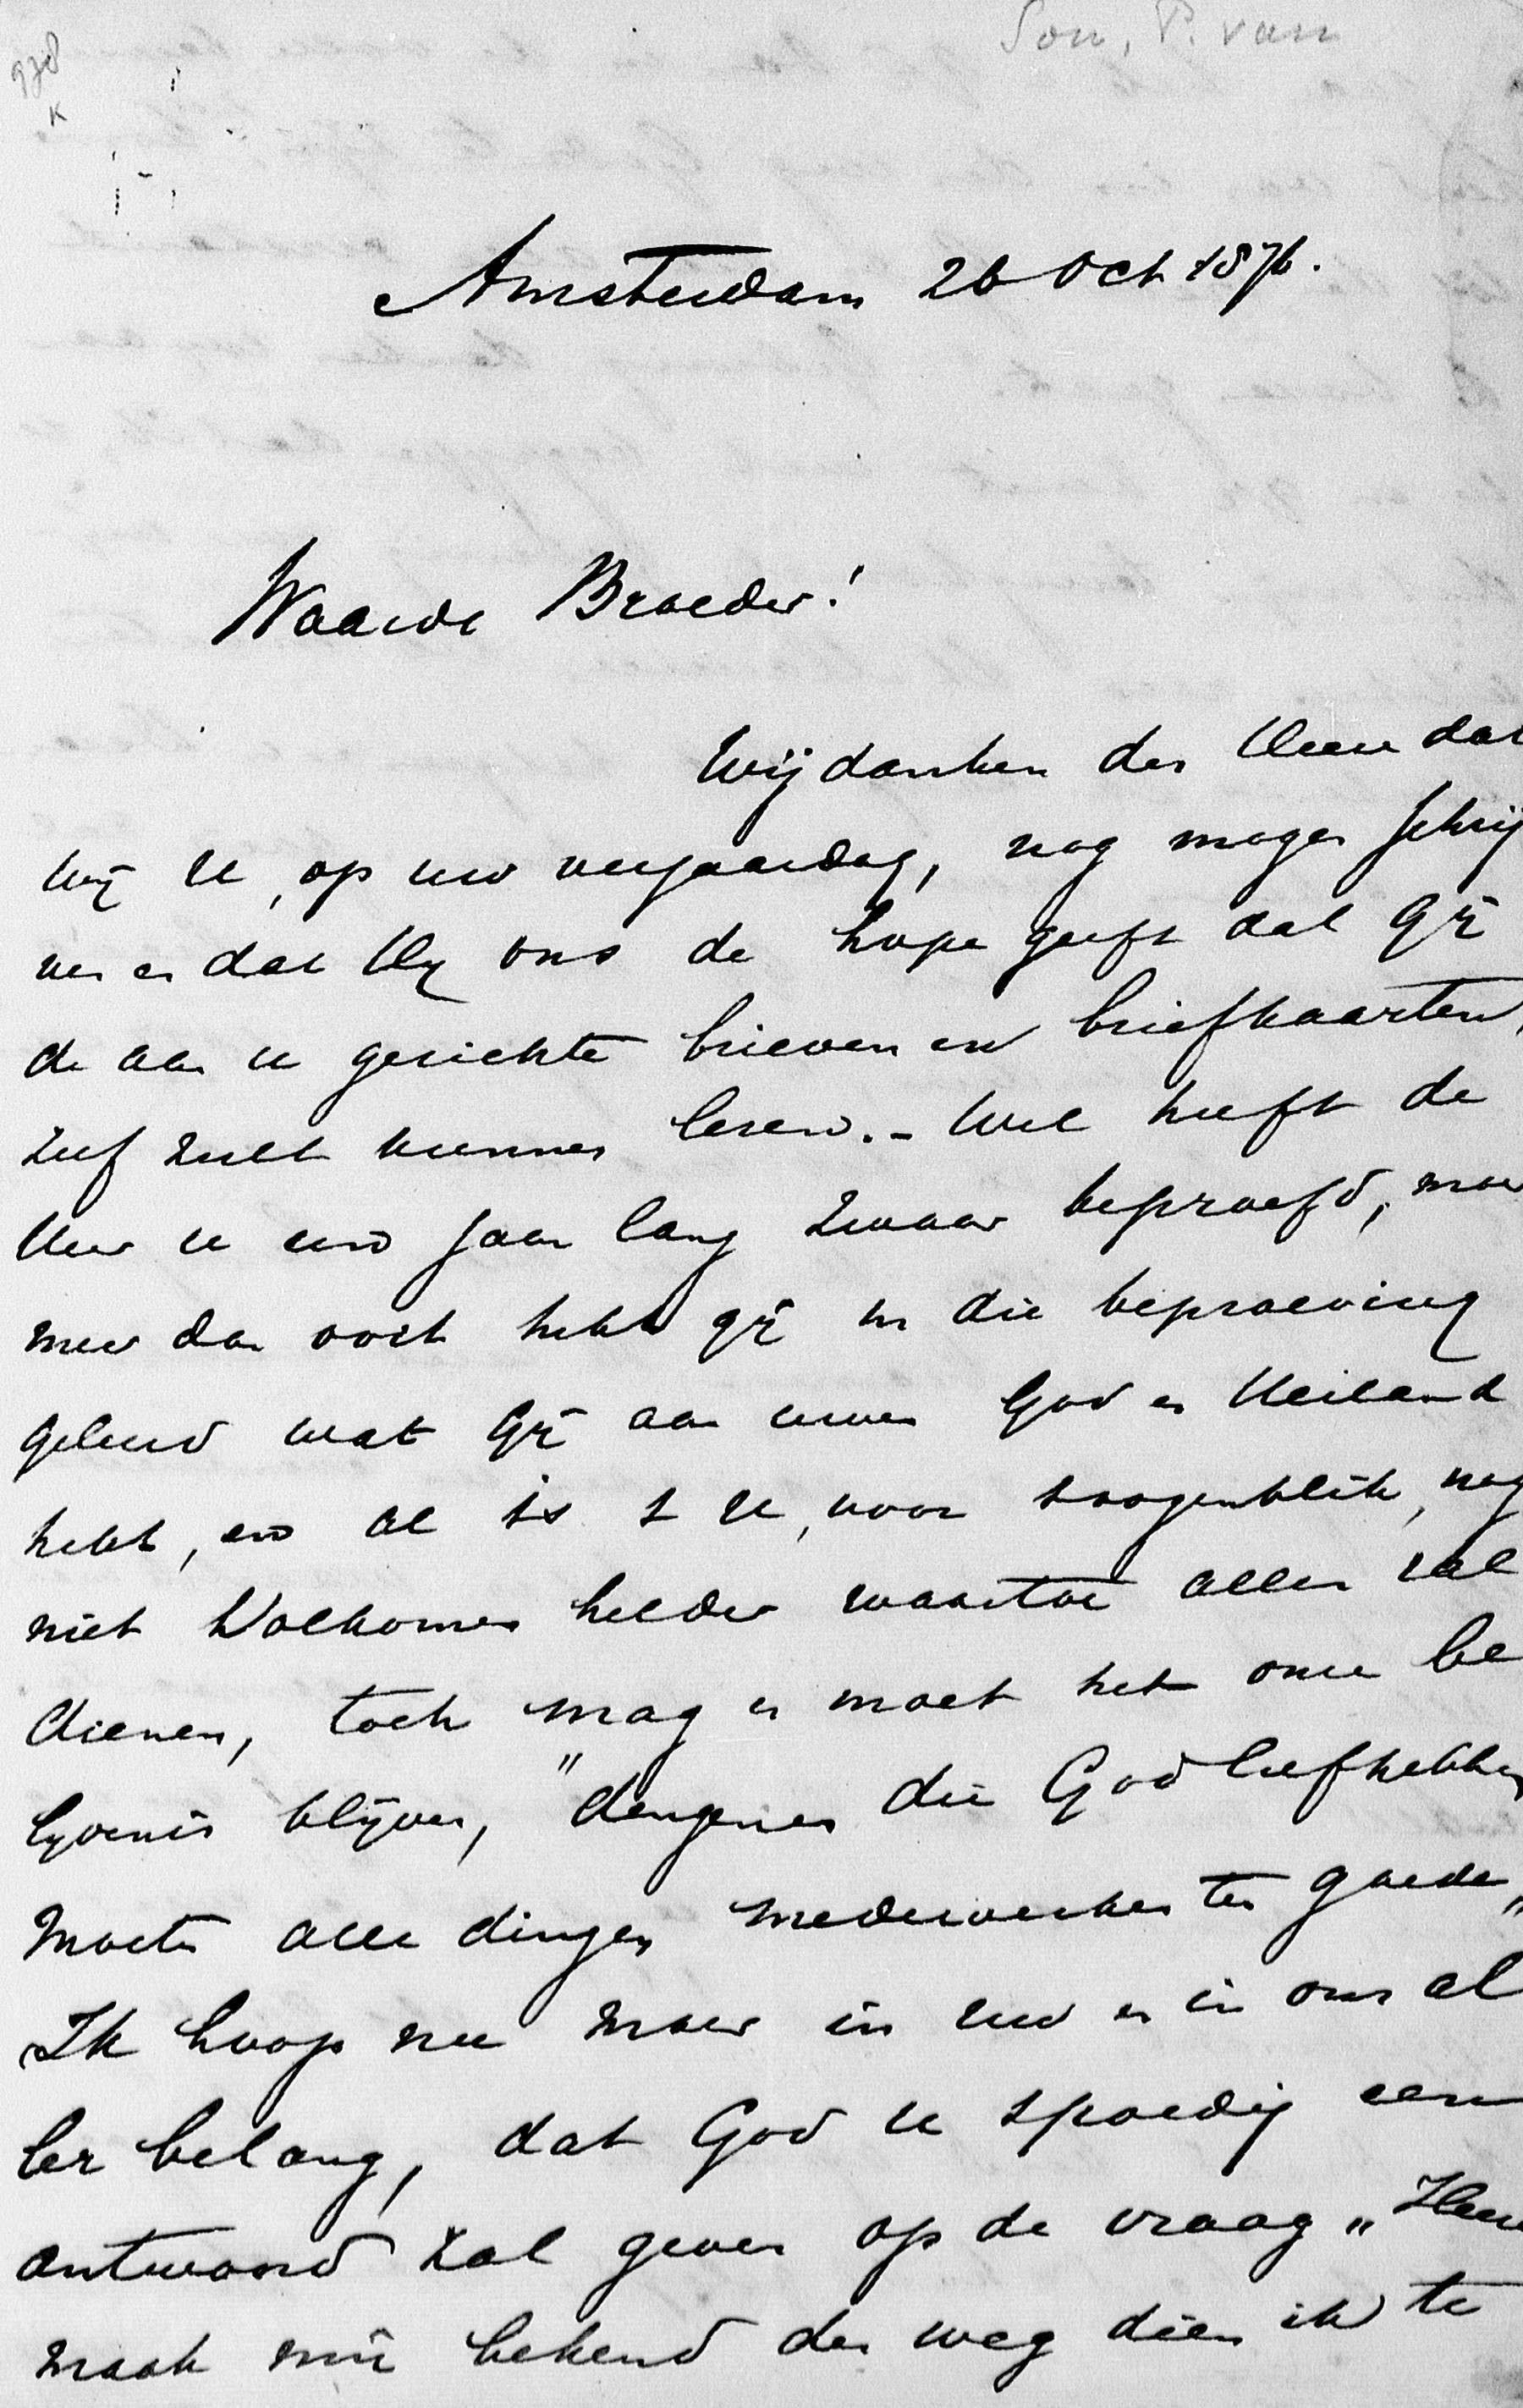 Son, P. van
978
K
Amsterdam 26 Oct 1876.
Waarde Broeder!
Wij danken den Heere dat
wij U, op uw verjaardag, nog mogen schrij
ven en dat Hij ons de hope geeft dat Gij
de aan u gerichte brieven en briefkaarten,
zelf zult kunnen lezen. – Wel heeft de
Heer u een jaar lang zwaar beproefd, maar
meer dan ooit hebt gij in die beproeving
geleerd wat Gij aan uwen God en Heiland
hebt, en al is 't U, voor 't oogenblik, nog
niet volkomen helder waartoe alles zal
dienen, toch mag en moet het onze be
lijdenis blijven, "dengenen die God liefhebben
moeten alle dingen medewerken ten goede"
Ik hoop nu maar in uw en in ons al
ler belang, dat God u spoedig een
antwoord zal geven op de vraag „Heere
maak mij bekend den weg dien ik te